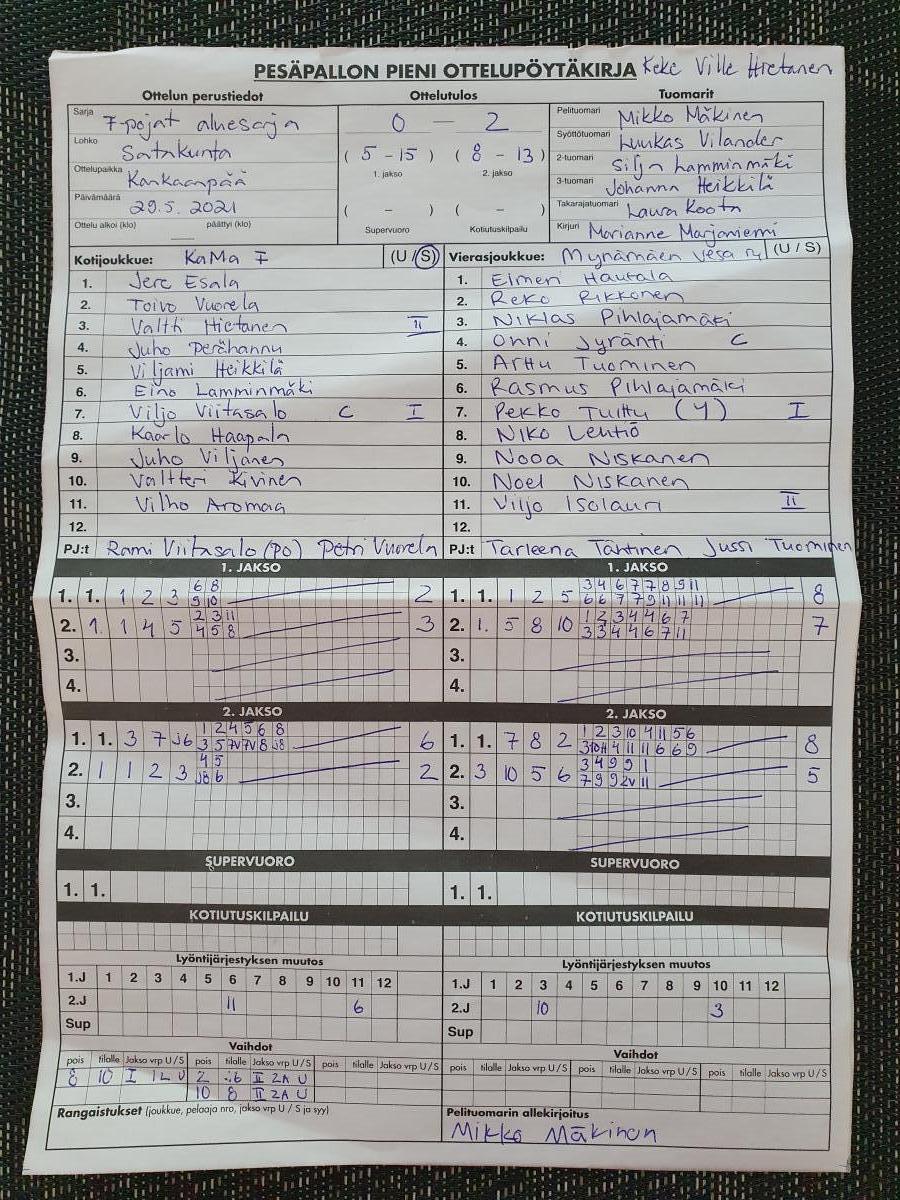 PESÄPALLON PIENI OTTELUPÖYTÄKIRJA Keke Ville Hietanen
Ottelun perustiedot Ottelutulos Tuomarit
Sarja F-pojat aluesarja 0 – 2 Pelituomari Mikko Mäkinen
Lohko Satakunta ( 5 - 15 ) ( 8 - 13 ) Syöttötuomari Luukas Vilander
Ottelupaikka Kankaanpää 1. jakso 2. jakso 2-tuomari Silja Lamminmäki
Päivämäärä 29.5. 2021 ( – ) ( – ) 3-tuomari Johanna Heikkilä
Takarajatuomari Laura Koota
Ottelu alkoi (klo) päättyi (klo) Supervuoro Kotiutuskilpailu Kirjuri Marianne Marjaniemi
Kotijoukkue: KaMa F (U / S) Vierasjoukkue: Mynämäen Vesa ry (U / S)
1. Jere Esala 1. Elmeri Hautala
2. Toivo Vuorela 2. Reko Rikkonen
3. Valtti Hietanen II 3. Niklas Pihlajamäki
4. Juho Perähannu 4. Onni Jyränti C
5. Viljami Heikkilä 5. Arttu Tuominen
6. Eino Lamminmäki 6. Rasmus Pihlajamäki
7. Viljo Viitasalo C I 7. Pekko Tuittu (Y) I
8. Kaarlo Haapala 8. Niko Lehtiö
9. Juho Viljanen 9. Nooa Niskanen
10. Valtteri Kivinen 10. Noel Niskanen
11. Vilho Aromaa 11. Viljo Isolauri II
12. 12.
PJ:t Rami Viitasalo (PO) Petri Vuorela PJ:t Tarleena Tähtinen Jussi Tuominen
1. JAKSO 1. JAKSO
6 8 3 4 6 7 7 8 9 11
1. 1. 1 2 3 9 10 2 1. 1. 1 2 5 6 6 7 7 9 11 11 11 8
2 3 11 1 2 3 4 4 6 7
2. 1. 1 4 5 4 5 8 3 2. 1. 5 8 10 3 3 4 4 6 7 11 7
3. 3.
4. 4.
2. JAKSO 2. JAKSO
1 2 4 5 6 8 1 2 3 10 4 11 5 6
1. 1. 3 7 J6 3 5 7V 7V 8 J8 6 1. 1. 7 8 2 3 10 11 4 11 11 6 6 9 8
4 5 3 4 9 9 1
2. 1 1 2 3 J8 6 2 2. 3 10 5 6 7 9 9 2V 11 5
3. 3.
4. 4.
SUPERVUORO SUPERVUORO
1. 1. 1. 1.
KOTIUTUSKILPAILU KOTIUTUSKILPAILU
Lyöntijärjestyksen muutos Lyöntijärjestyksen muutos
1.J 1 2 3 4 5 6 7 8 9 10 11 12 1.J 1 2 3 4 5 6 7 8 9 10 11 12
2.J 11 6 2.J 10 3
Sup Sup
Vaihdot Vaihdot
pois tilalle Jakso vrp U / S pois tilalle Jakso vrp U / S pois tilalle Jakso vrp U / S pois tilalle Jakso vrp U / S pois tilalle Jakso vrp U / S pois tilalle Jakso vrp U / S
8 10 I 1L U 2 6 II 2A U
10 8 II 2A U
Rangaistukset (joukkue, pelaaja nro, jakso vrp U / S ja syy) Pelituomarin allekirjoitus
Mikko Mäkinen